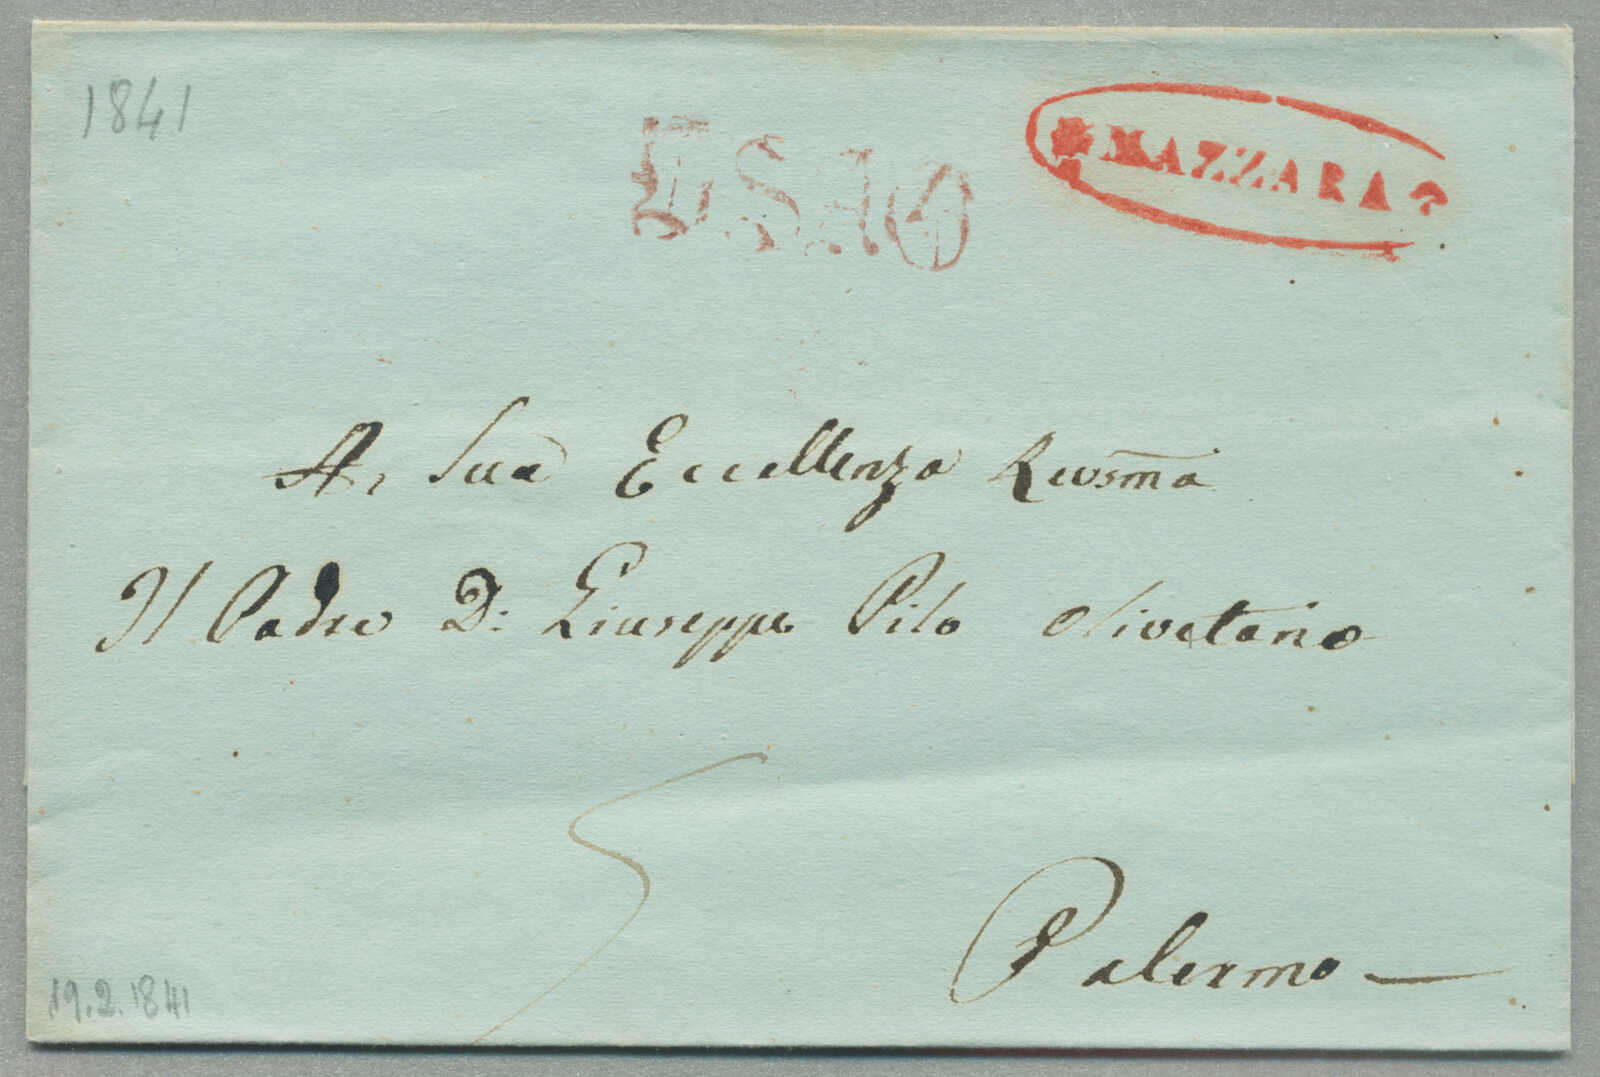 1841
MAZZARA
A, Sua Eccellenza Revsma
Il Padre D: Giuseppe Pilo Olivetano
5
Palermo
19.2.1841